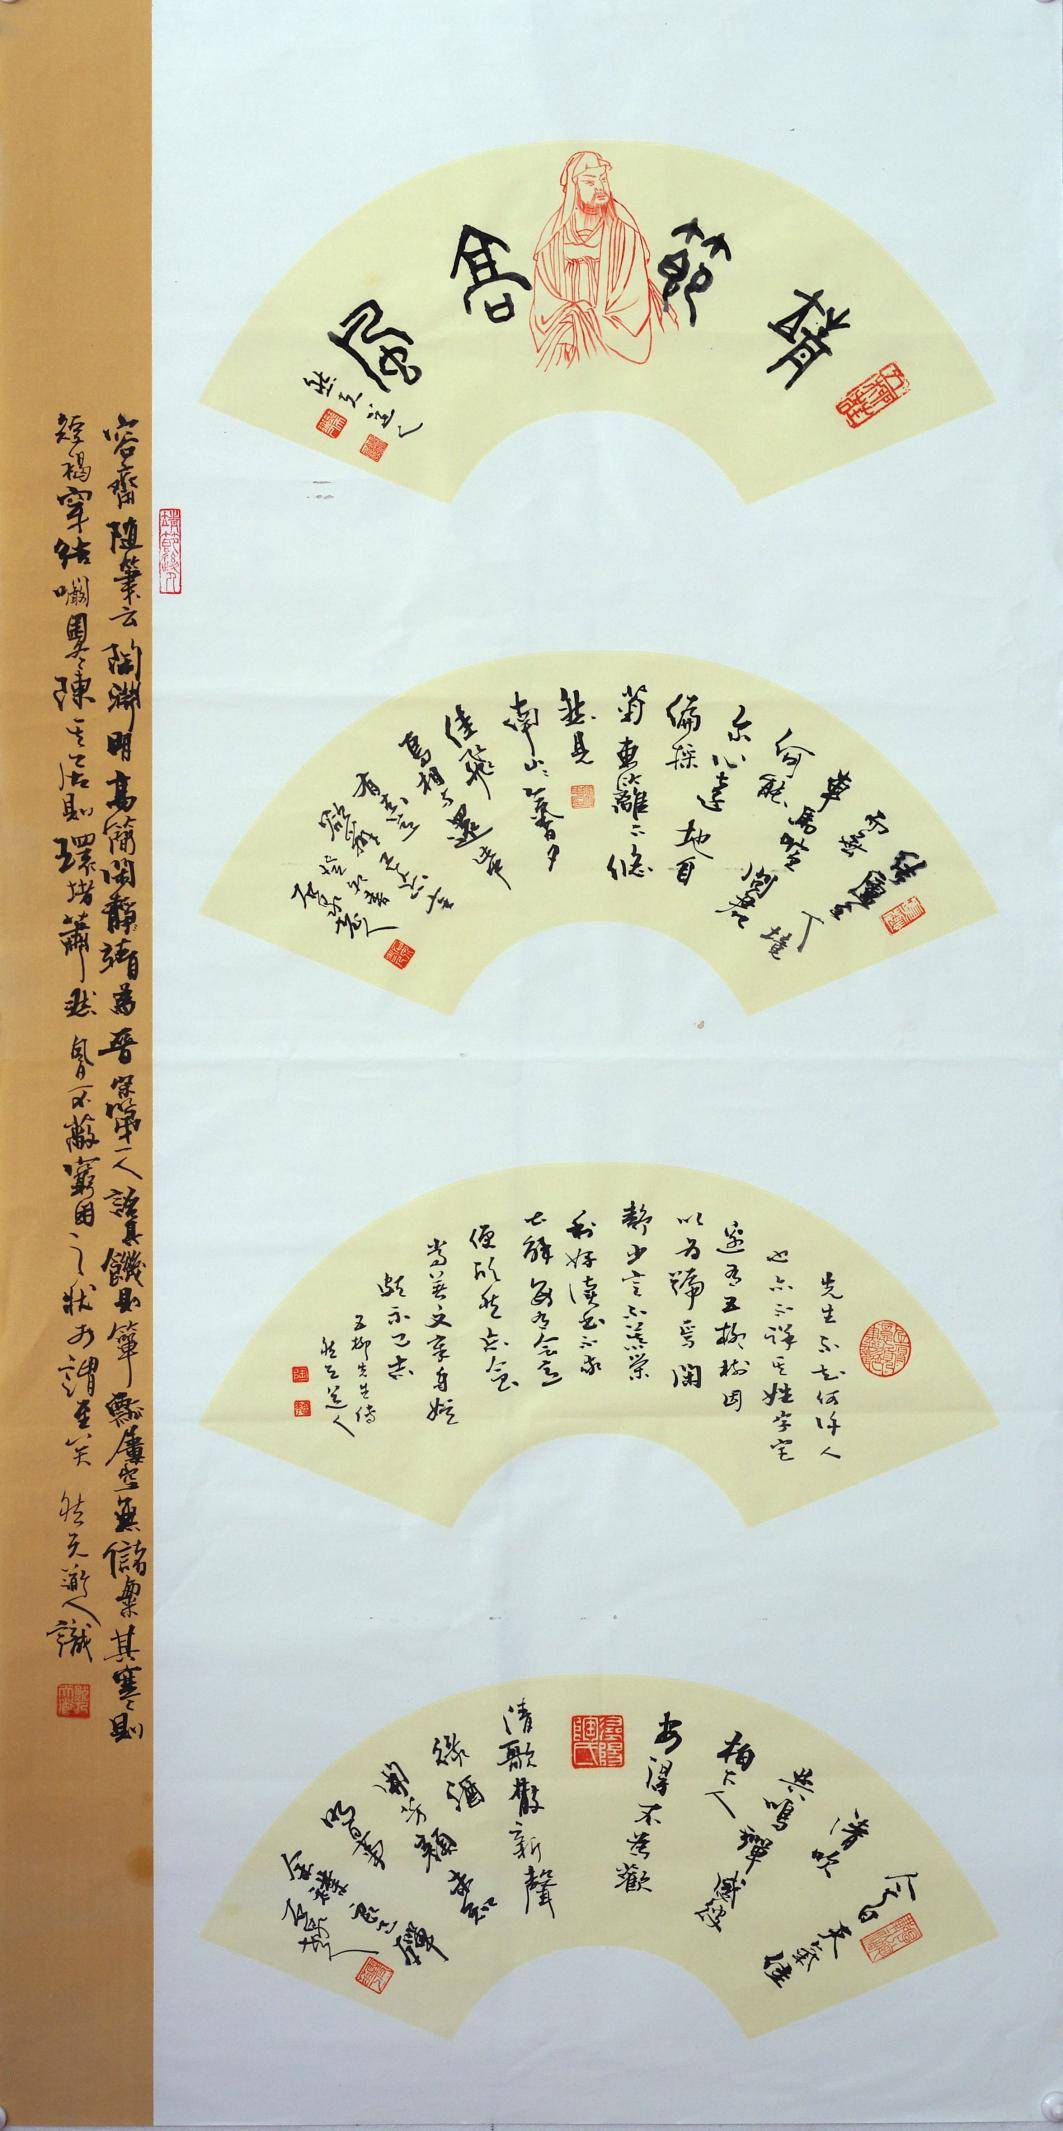 靖節高風
結廬在人境
而無
車馬喧問君
何能
尔心遠地自
偏採
菊東籬下悠
然見
南山山氣日夕
佳飛
鳥相與還此中
有真意
欲辯已忘言
先生不知何許人
也亦不詳其姓字宅
邊有五柳樹因
以為號焉閑
靜少言不慕榮
利好讀書不求
甚解每有會意
便欣然忘食
常著文章自娛
頗示己志
五柳先生傳
今日天氣佳
清吹
與鳴彈感彼
柏下人
安得不為歡
清歌散新聲
綠酒
開芳顏未知
明日事
余襟良已殫
容齋隨筆云陶淵明高簡閑靜為晉宋第一人語其饑則簞瓢屢空無儲粟其寒則
短褐穿結陳其居則環堵蕭然風日不蔽窮困之狀可謂至矣